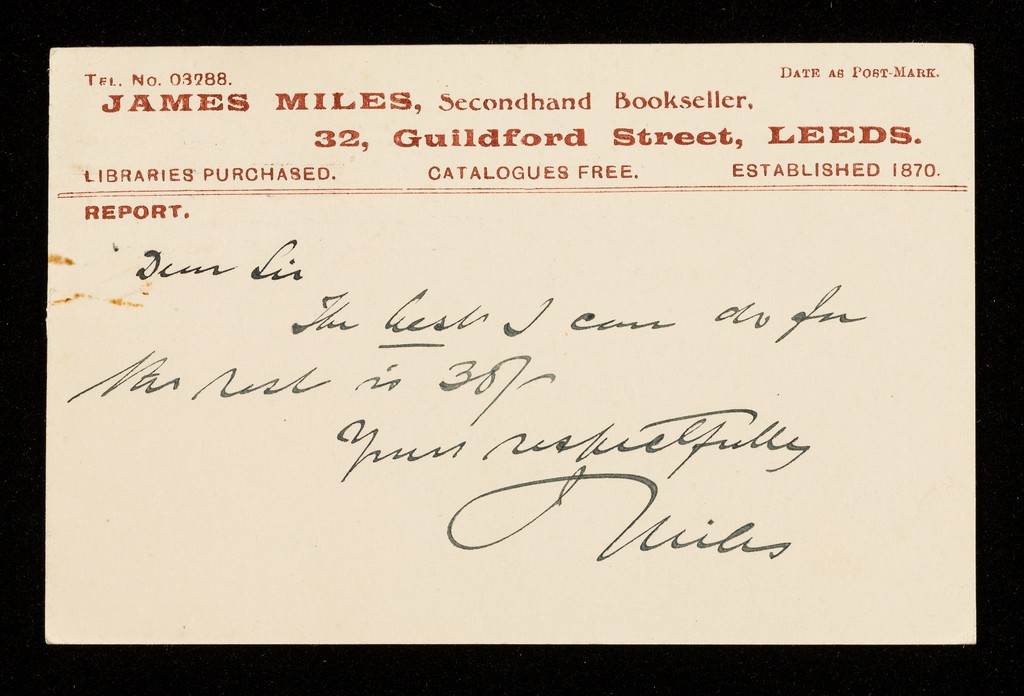 TEL. No. 03288.
DATE AS POST-MARK.
JAMES MILES, Secondhand Bookseller,
32, Guildford Street, LEEDS.
LIBRARIES PURCHASED. CATALOGUES FREE. ESTABLISHED 1870.
REPORT.
Dear Sir
The best I can do for
the rest is 30/-
Yours respectfully
J Miles